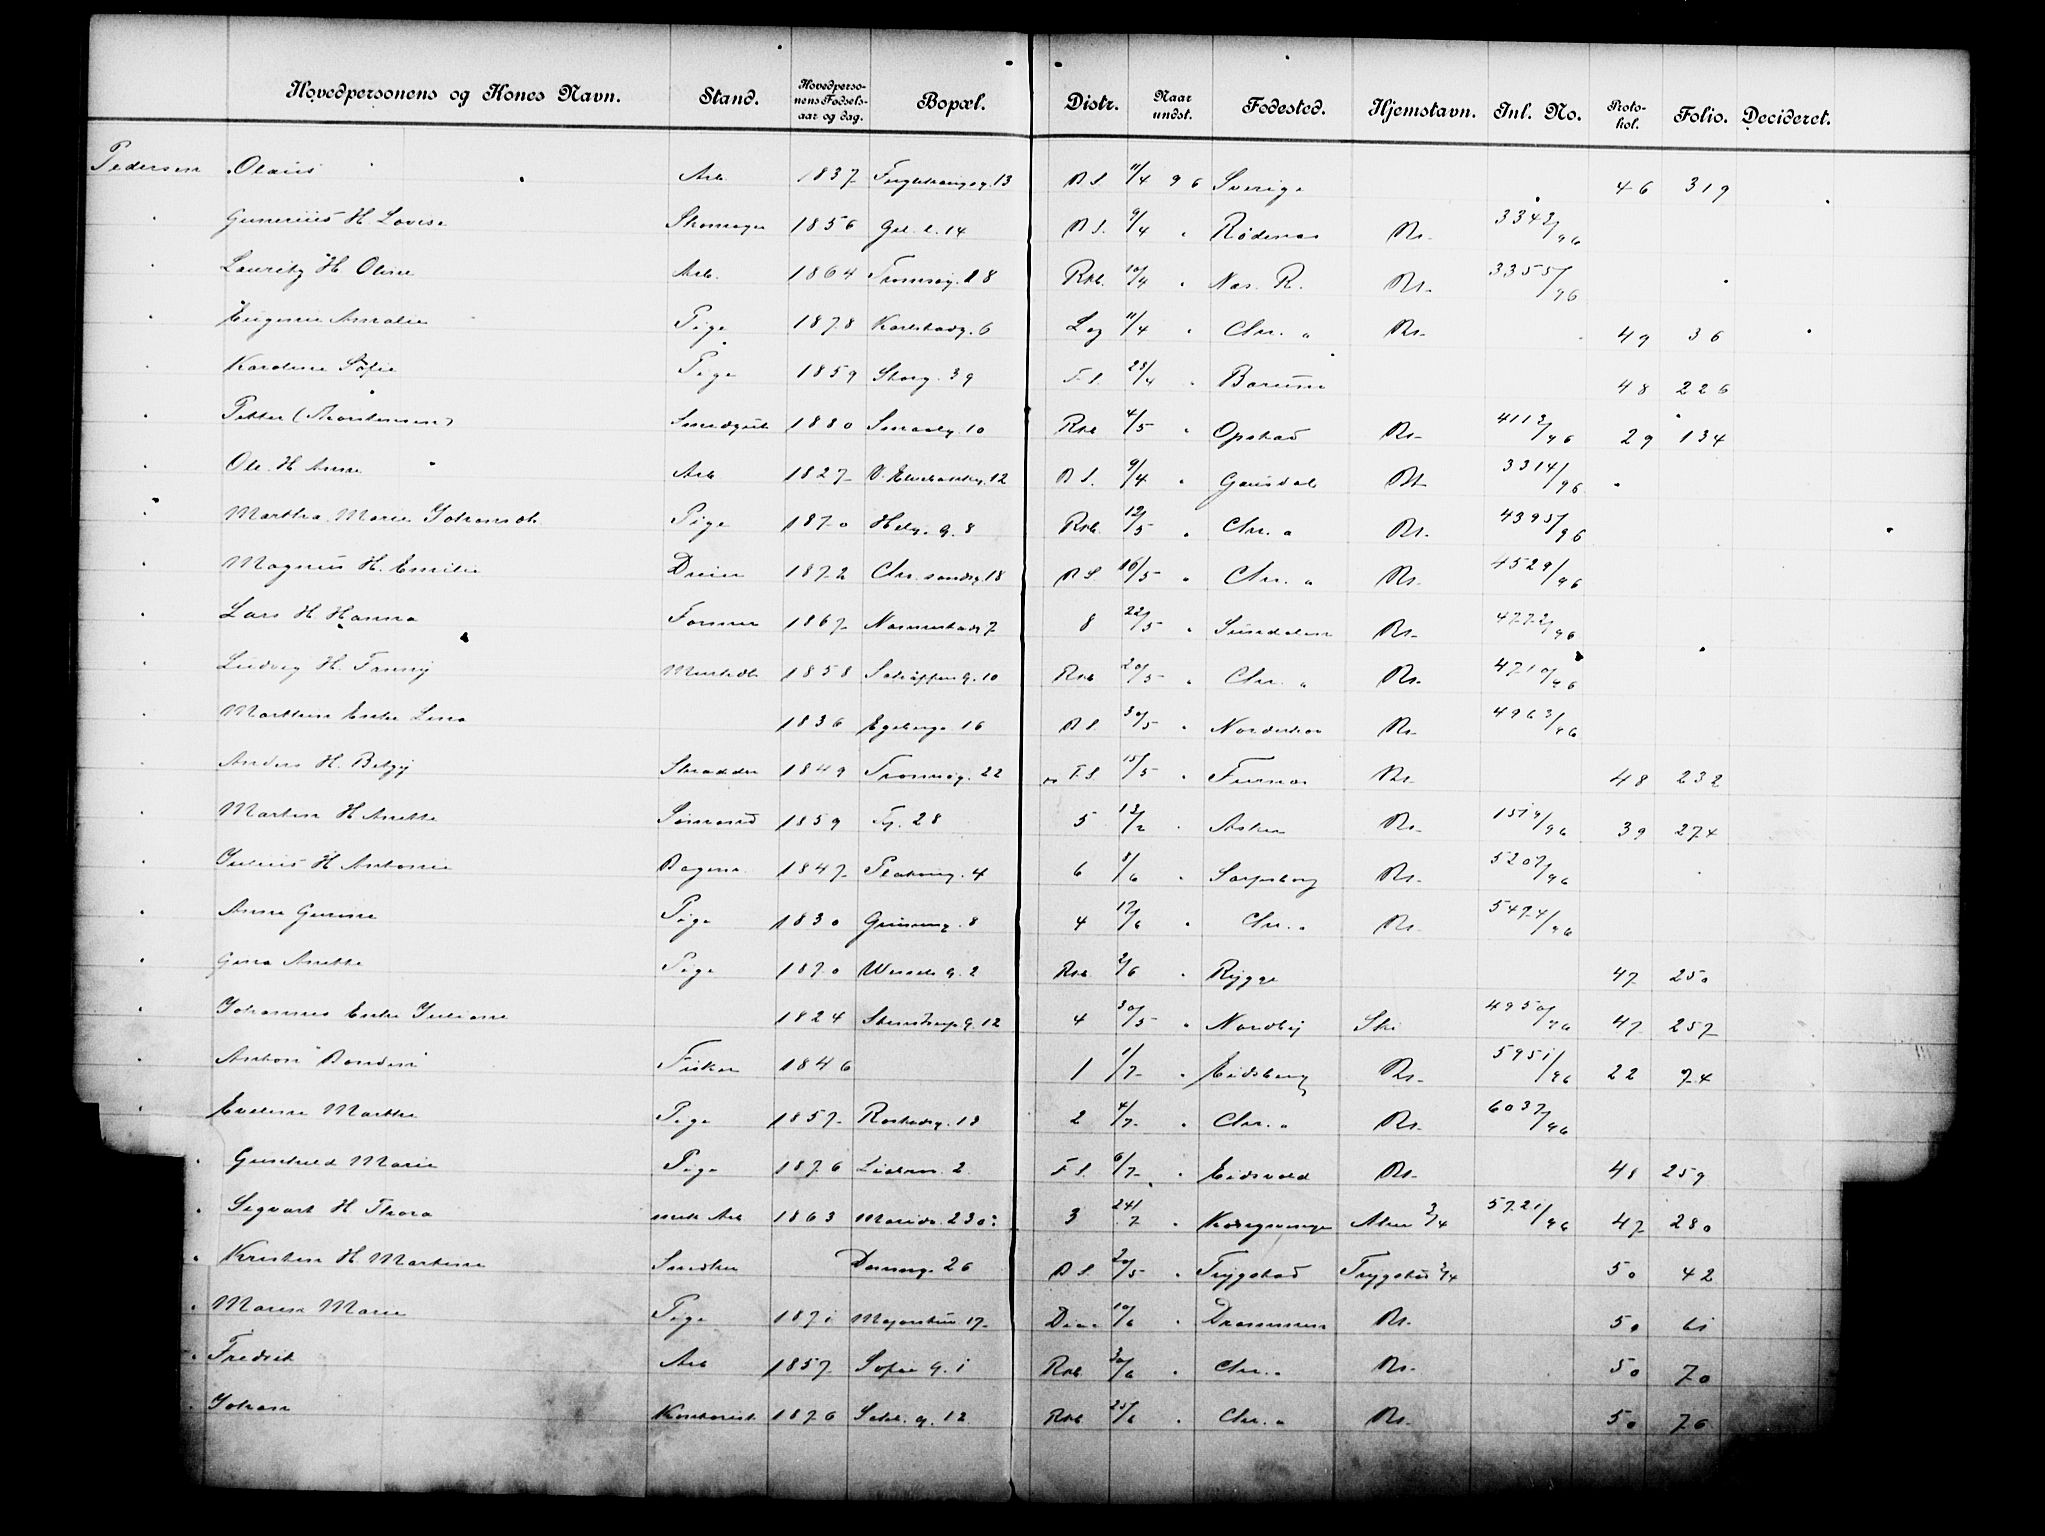 Hovedpersonens og Kones Navn. Stand. Hovedperso-nens Fødsels-aar og dag. Bopæl. Distr. Naar undst. Fødested. Hjemstavn. Inl. No. Proto-kol. Folio. Decideret.
Pedersen Olaus Arb. 1837 13 B S. 11/4 96 Sverige 46 319
" Gunerius H. Lovise Skomager 1856 14 B S. 9/4 " Rødenes Kr. 3343/96
" Lauritz H. Oline Arb. 1864 Tromsøg. 28 Rkb. 10/4 " Nes. R. Kr. 3355/96
" Eugenie Amalie Pige 1878 Karlstadg. 6 Log 11/4 " Chr. " Kr. 49 36
" Karoline Sofie Pige 1859 Storg. 39 F. S. 23/4 " Bærum 48 226
" Petter (Thorstensen) Smedgut 1880 Smalg. 10 Rkb 4/5 " Opstad Kr. 4113/96 29 134
" Ole H. Anne Arb 1827 V. Elvebakkeg. 12 B S. 9/4 " Gausdal Kr. 3314/96
" Martha Marie Johansdt. Pige 1870 Helg. g. 8 Rkb. 12/5 " Chr. " Kr. 4395/96
" Magnus H. Emilie Dreier 1872 Chr. sandsg. 18 B S. 16/5 " Chr. " Kr. 4529/96
" Lars H. Hanna Former 1867 Nannestadg. 7 8 22/5 " Kr. 4772/96
" Ludvig H. Fanny 1858 Schüssleng. 10 Rkb 20/5 " Chr. " Kr. 4710/96
" Marthin Enke Lina 1836 Egeberg. 16 B S. 30/5 " Norderhov Kr. 4963/96
" Anders H. Betzy Skrædder 1849 Tromsøg. 22 F. S. 15/5 " Furnes Kr. 48 232
" Martin H. Anette Sømand 1859 28 5 13/2 " Asker Kr. 1519/96 39 274
" Julius H. Antonie Bager 1847 Platoug. 4 6 8/6 " Sarpsborg Kr. 5207/96
" Anne Gurine Pige 1830 Grünerg. 8 4 17/6 " Chr. " Kr. 5474/96
" Gina Anette Pige 1870 Wessels g. 2 Rkb 2/6 " Rygge 47 250
" Johannes Enke Juliane 1824 Stenstrup g. 12 4 30/5 " Nordby Ski 4950/96 47 257
" Anton "Bonden" Fisker 1846 1 1/7 " Eidsberg Kr. 5951/96 22 74
" Eveline Marthe Pige 1857 Rostedsg. 13 2 4/7 " Chr. " Kr. 6037/96
" Gunhild Marie Pige 1876 2 F. S. 6/7 " Eidsvold Kr. 48 259
" Sigvart H. Thora Arb 1863 Marida. 230 3 24/7 " Kongsvinger Aker 2/4 5721/96 47 280
" Kristen H. Martine Snedker 26 B S. 20/5 " Trygstad Trygstad 3/4 50 42
" Maren Marie Pige 1871 Majorstuv. 17 10/6 " Drammen Kr. 50 61
" Fredrik Arb 1857 Sofie g. 1 Rkb. 30/6 " Chr. " Kr. 50 70
" Johan Kontorist 1876 12 Rkb 25/6 " Chr. " Kr. 50 76